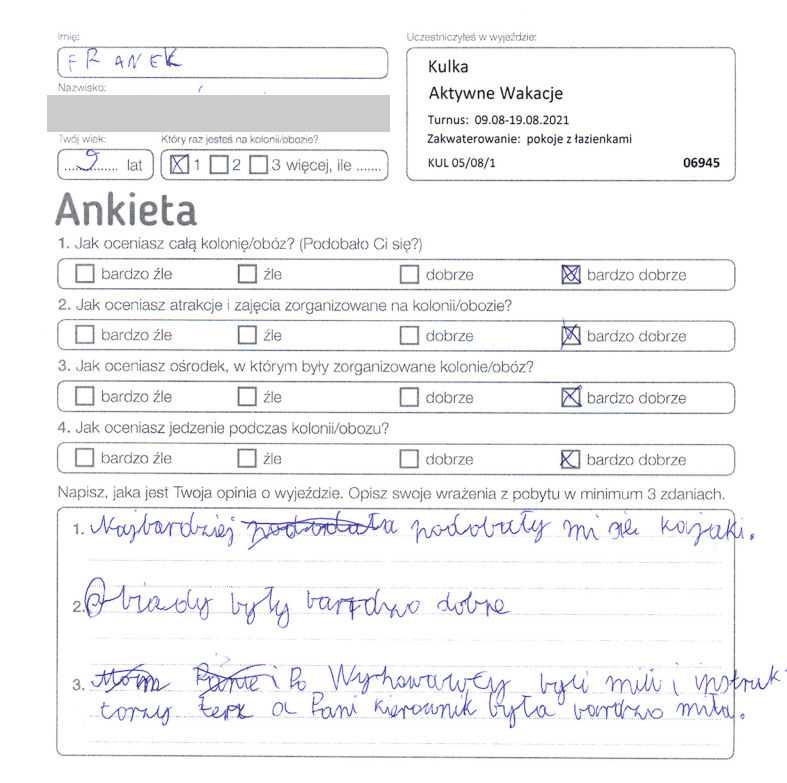 Imię:
FRANEK
Uczestniczyłeś w wyjeździe:
Kulka
Aktywne Wakacje
Turnus: 09.08-19.08.2021
Zakwaterowanie: pokoje z łazienkami
KUL 05/08/1 06945
Nazwisko:
Twój wiek: Który raz jesteś na kolonii/obozie?
9 lat 1 2 3 więcej, ile .......
Ankieta
1. Jak oceniasz całą kolonię/obóz? (Podobało Ci się?)
bardzo źle źle dobrze bardzo dobrze
2. Jak oceniasz atrakcje i zajęcia zorganizowane na kolonii/obozie?
bardzo źle źle dobrze bardzo dobrze
3. Jak oceniasz ośrodek, w którym były zorganizowane kolonie/obóz?
bardzo źle źle dobrze bardzo dobrze
4. Jak oceniasz jedzenie podczas kolonii/obozu?
bardzo źle źle dobrze bardzo dobrze
Napisz, jaka jest Twoja opinia o wyjeździe. Opisz swoje wrażenia z pobytu w minimum 3 zdaniach.
1. Najbardziej podobały mi sie kajaki.
2. Obiady były bardzo dobre
3. Wychowawcy byli mili i instruk
torzy a Pani kierownik była bardzo miła.